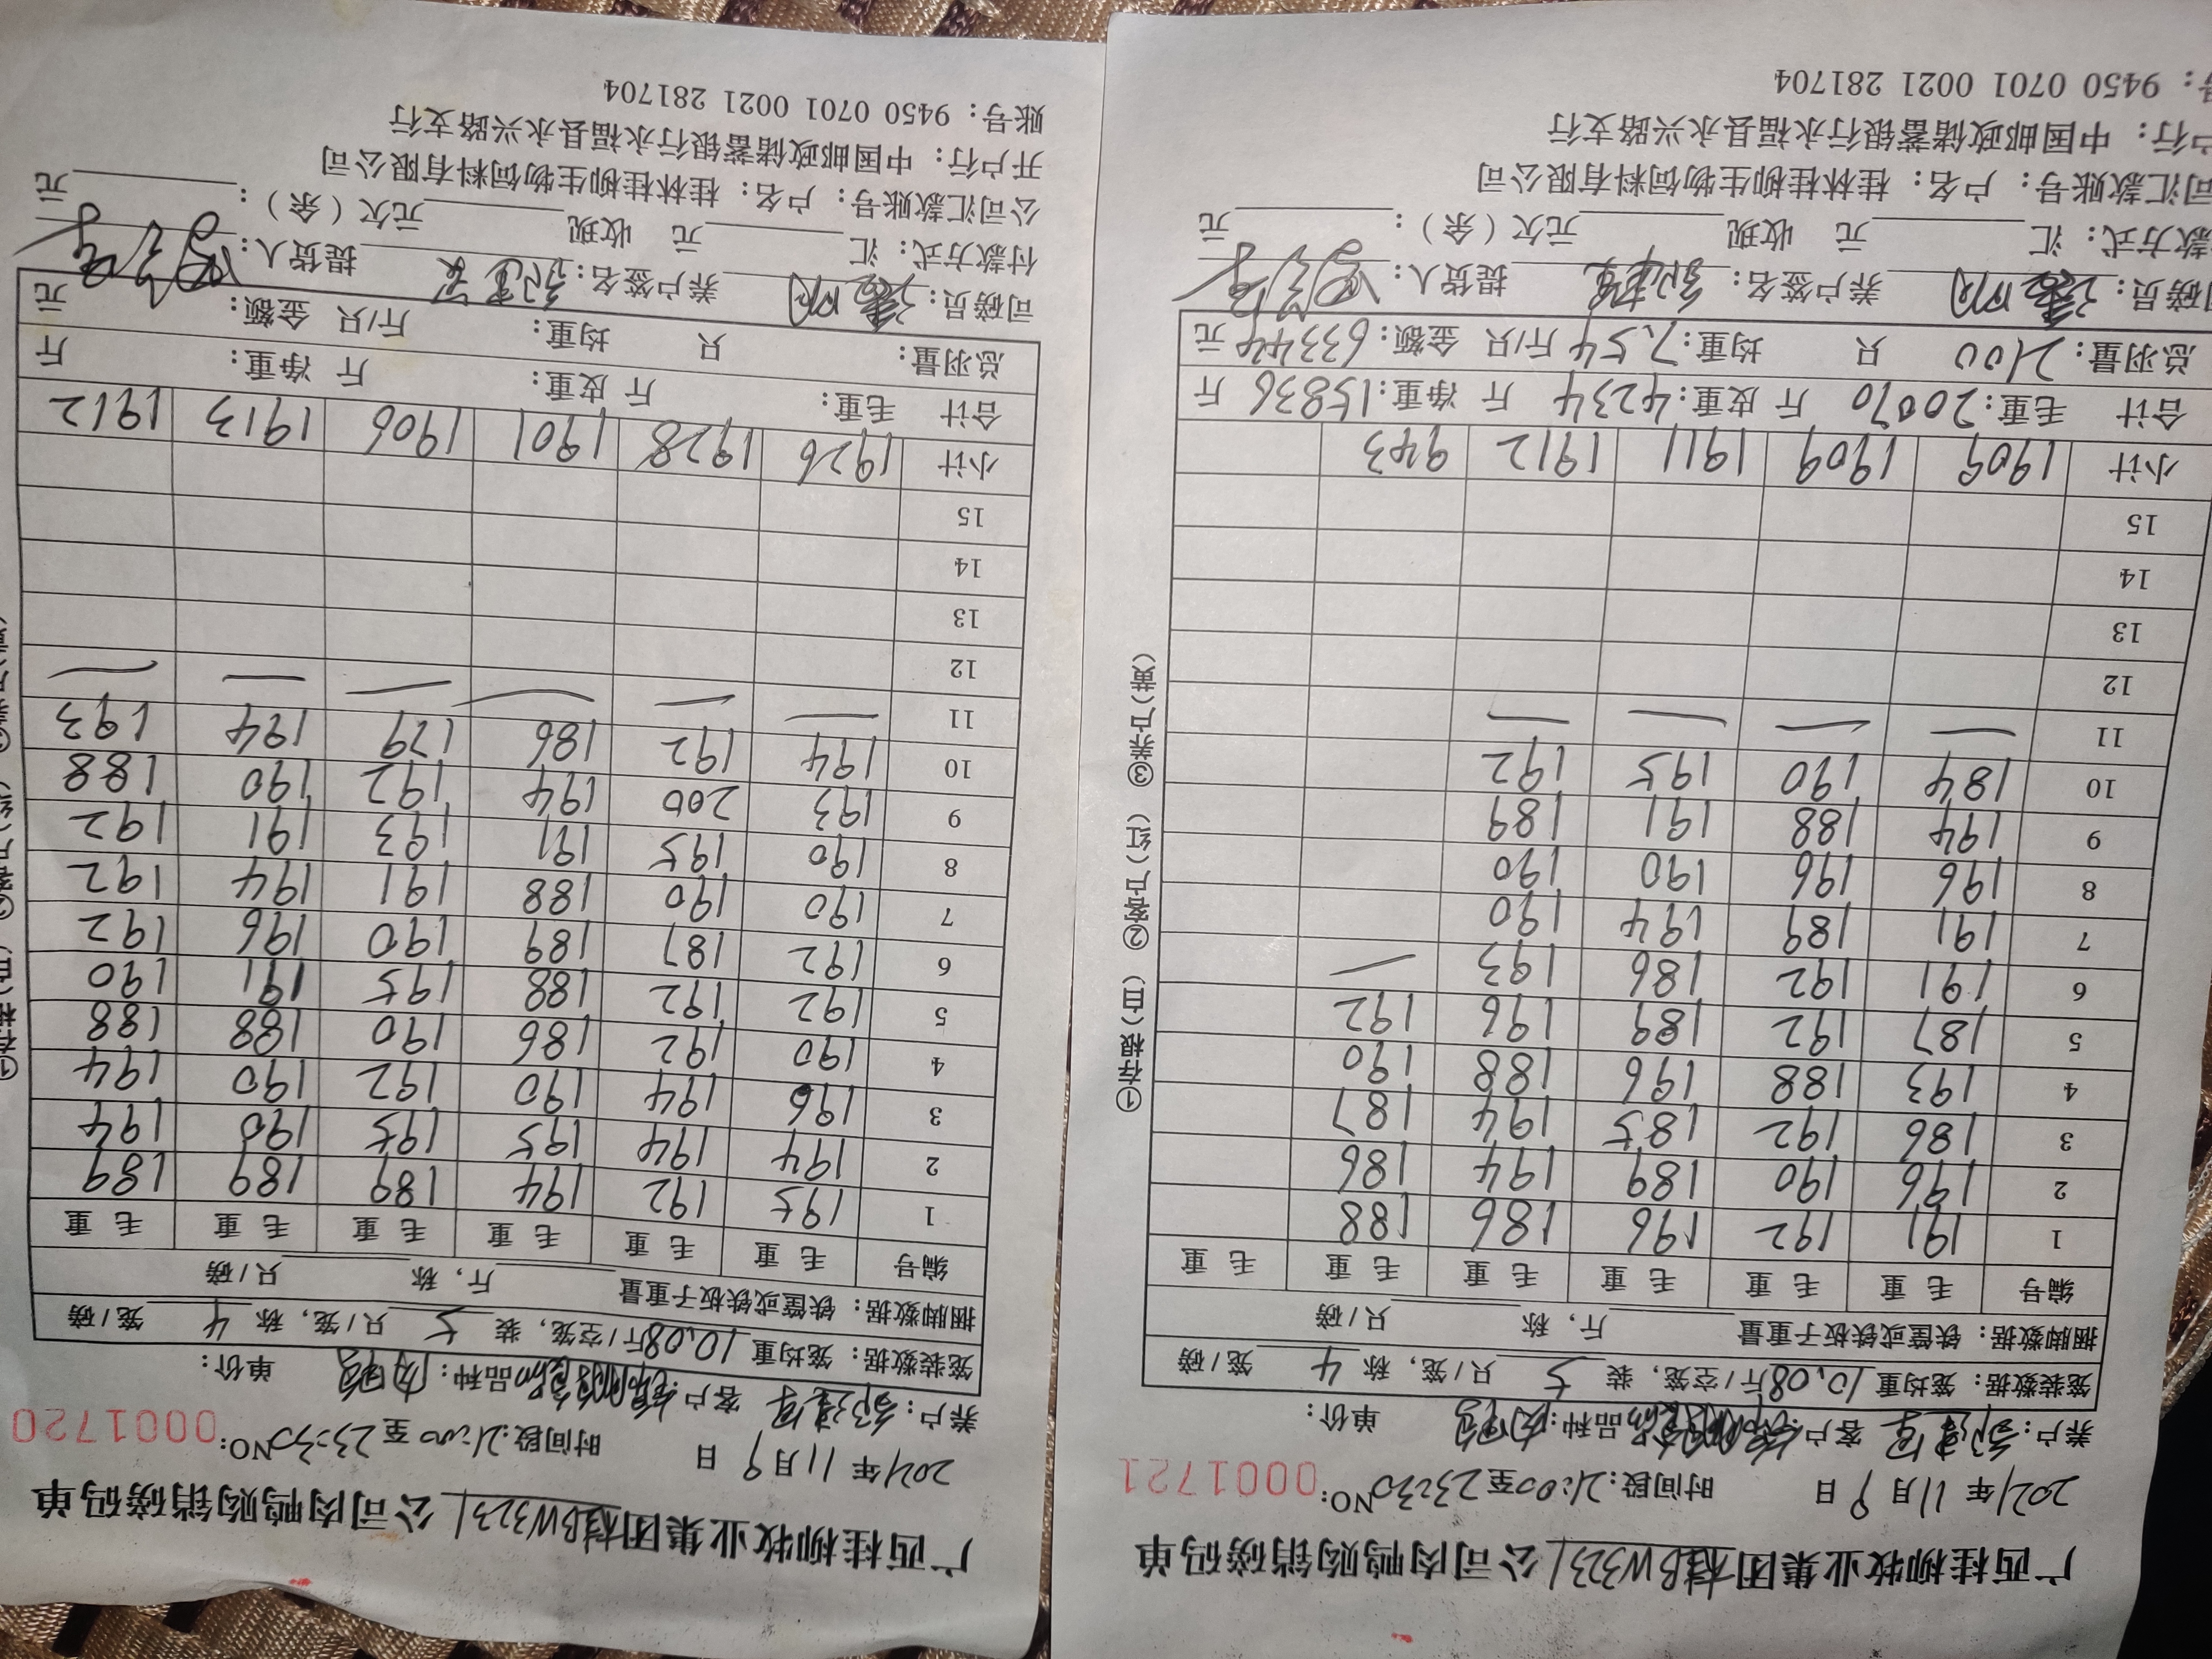 广西桂柳牧业集团桂BW3231公司肉鸭购销磅码单
2021年 11月 9日 时间段:21:00至23:30 NO:0001721
养户: 客户: 品种:肉鸭 单价:
笼装数据: 笼均重10.08斤/空笼, 装 5 只/笼, 称 4 笼/磅
捆脚数据: 铁筐或铁板子重量 斤, 称 只/磅
编号 毛重 毛重 毛重 毛重 毛重 毛重
1 191 192 196 186 188
2 196 190 189 194 186
3 186 192 185 194 187
4 193 188 196 188 190
5 187 192 189 196 192
6 191 192 186 193 —
7 191 189 194 190
8 196 196 190 190
9 194 188 191 189
10 184 190 195 192
11 — — — —
12
13
14
15
小计 1909 1909 1911 1912 943
合计 毛重:20070 斤 皮重:4234 斤 净重:15836 斤
总羽量:2100 只 均重:7.54 斤/只 金额:63344 元
司磅员: 养户签名: 提货人:
付款方式: 汇 元 收现 元欠(余): 元
公司汇款账号: 户名: 桂林桂柳生物饲料有限公司
开户行: 中国邮政储蓄银行永福县永兴路支行
账号: 9450 0701 0021 281704
①存根(白) ②客户(红) ③养户(黄)
广西桂柳牧业集团桂BW3231公司肉鸭购销磅码单
2021年 11月 9日 时间段:21:00至23:30 NO:0001720
养户: 客户: 品种:肉鸭 单价:
笼装数据: 笼均重10.08斤/空笼, 装 5 只/笼, 称 4 笼/磅
捆脚数据: 铁筐或铁板子重量 斤, 称 只/磅
编号 毛重 毛重 毛重 毛重 毛重 毛重
1 195 192 194 189 189 189
2 194 194 195 195 190 194
3 196 194 190 192 190 194
4 190 192 186 190 188 188
5 192 192 188 195 191 190
6 192 187 189 190 196 192
7 190 190 188 191 194 192
8 190 195 191 193 191 192
9 193 200 194 192 190 188
10 194 192 186 179 194 193
11 — — — — — —
12
13
14
15
小计 1926 1928 1901 1906 1913 1912
合计 毛重: 斤 皮重: 斤 净重: 斤
总羽量: 只 均重: 斤/只 金额: 元
司磅员: 养户签名: 提货人:
付款方式: 汇 元 收现 元欠(余): 元
公司汇款账号: 户名: 桂林桂柳生物饲料有限公司
开户行: 中国邮政储蓄银行永福县永兴路支行
账号: 9450 0701 0021 281704
①存根(白) ②客户(红)